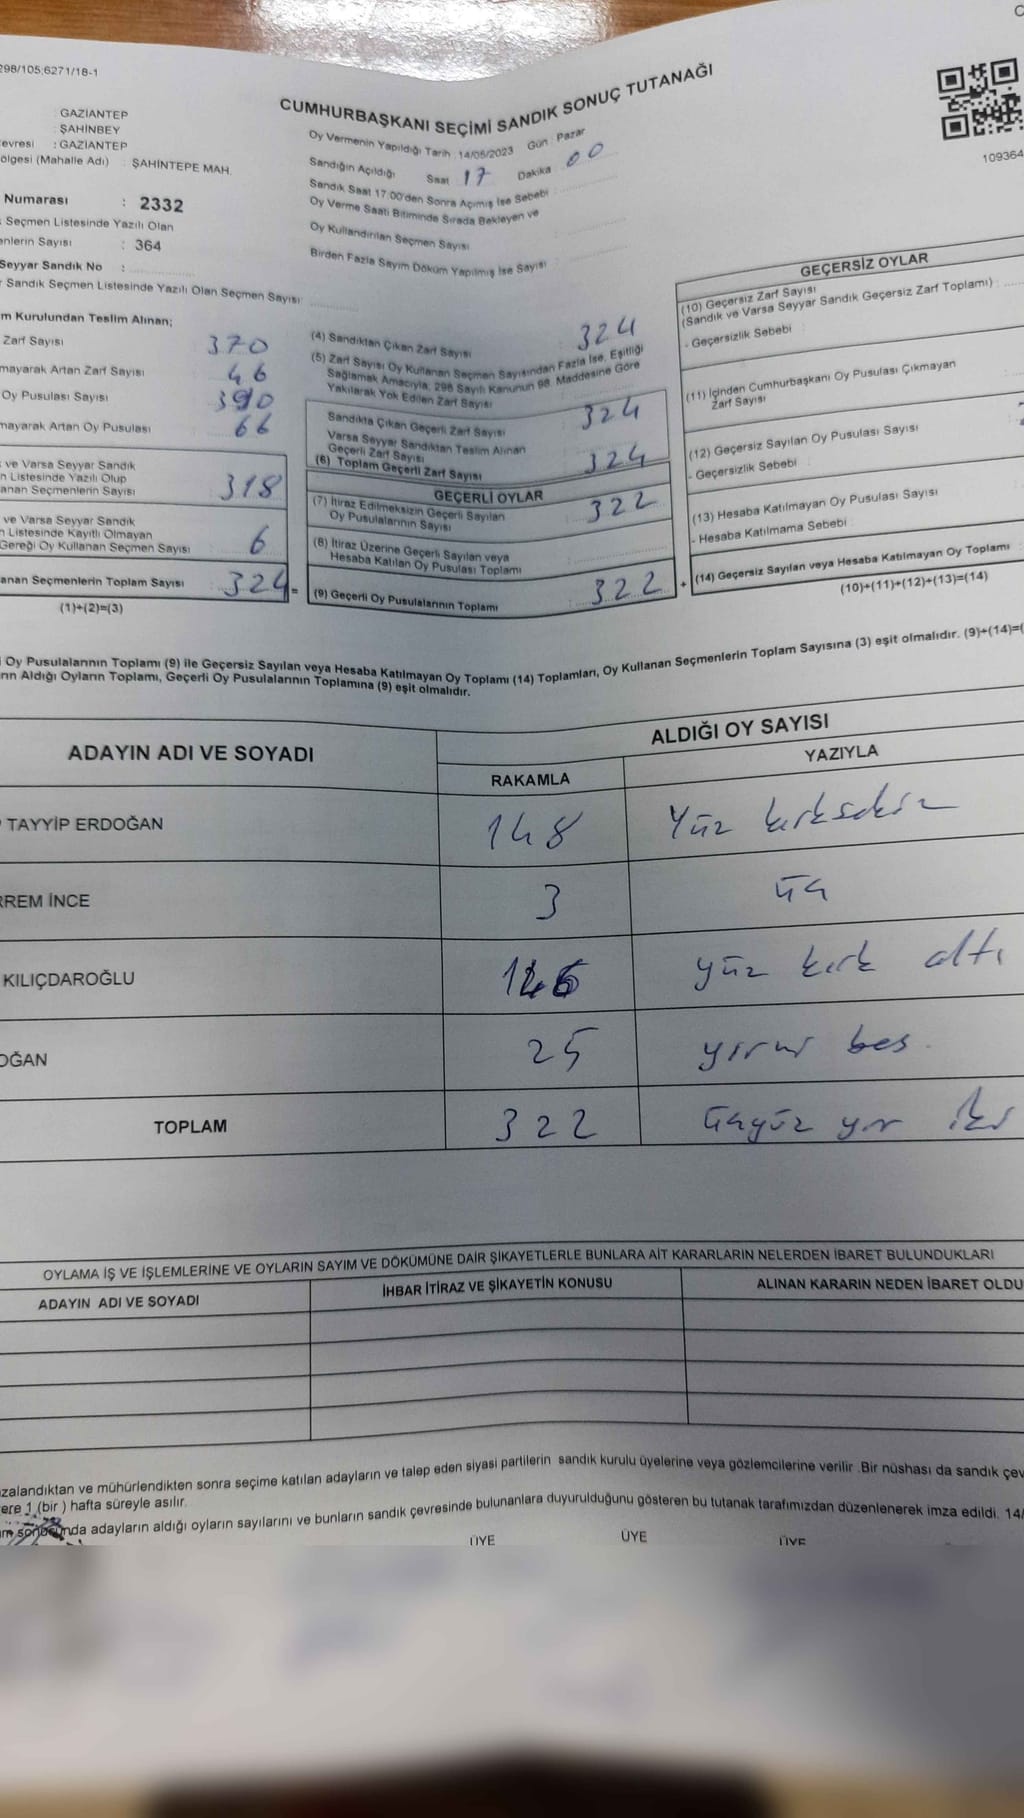 298/105;6271/18-1
CUMHURBAŞKANI SEÇİMİ SANDIK SONUÇ TUTANAĞI
: GAZİANTEP
: ŞAHİNBEY
evresi : GAZİANTEP
ölgesi (Mahalle Adı) : ŞAHİNTEPE MAH.
Numarası : 2332
Seçmen Listesinde Yazılı Olan
enlerin Sayısı : 364
Seyyar Sandık No :
Sandık Seçmen Listesinde Yazılı Olan Seçmen Sayısı:
Oy Vermenin Yapıldığı Tarih : 14/05/2023 Gün : Pazar
Sandığın Açıldığı Saat 17 Dakika 00
Sandık Saat 17:00'den Sonra Açımış İse Sebebi :
Oy Verme Saati Bitiminde Sırada Bekleyen ve
Oy Kullandırılan Seçmen Sayısı :
Birden Fazla Sayım Döküm Yapılmış İse Sayısı :
109364
m Kurulundan Teslim Alınan;
Zarf Sayısı 370
mayarak Artan Zarf Sayısı : 46
Oy Pusulası Sayısı 390
mayarak Artan Oy Pusulası 66
ve Varsa Seyyar Sandık
n Listesinde Yazılı Olup
anan Seçmenlerin Sayısı 318
ve Varsa Seyyar Sandık
n Listesinde Kayıtlı Olmayan
Gereği Oy Kullanan Seçmen Sayısı 6
anan Seçmenlerin Toplam Sayısı : 324 =
(1)+(2)=(3)
(4) Sandıktan Çıkan Zarf Sayısı : 324
(5) Zarf Sayısı Oy Kullanan Seçmen Sayısından Fazla İse, Eşitliği
Sağlamak Amacıyla; 298 Sayılı Kanunun 98. Maddesine Göre
Yakılarak Yok Edilen Zarf Sayısı
Sandıkta Çıkan Geçerli Zarf Sayısı : 324
Varsa Seyyar Sandıktan Teslim Alınan
Geçerli Zarf Sayısı
(6) Toplam Geçerli Zarf Sayısı : 324
GEÇERLİ OYLAR
(7) İtiraz Edilmeksizin Geçerli Sayılan
Oy Pusulalarının Sayısı : 322
(8) İtiraz Üzerine Geçerli Sayılan veya
Hesaba Katılan Oy Pusulası Toplamı
(9) Geçerli Oy Pusulalarının Toplamı : 322 +
GEÇERSİZ OYLAR
(10) Geçersiz Zarf Sayısı
(Sandık ve Varsa Seyyar Sandık Geçersiz Zarf Toplamı) :
- Geçersizlik Sebebi :
(11) İçinden Cumhurbaşkanı Oy Pusulası Çıkmayan
Zarf Sayısı
(12) Geçersiz Sayılan Oy Pusulası Sayısı
- Geçersizlik Sebebi :
(13) Hesaba Katılmayan Oy Pusulası Sayısı
- Hesaba Katılmama Sebebi :
(14) Geçersiz Sayılan veya Hesaba Katılmayan Oy Toplamı :
(10)+(11)+(12)+(13)=(14)
Oy Pusulalarının Toplamı (9) ile Geçersiz Sayılan veya Hesaba Katılmayan Oy Toplamı (14) Toplamları, Oy Kullanan Seçmenlerin Toplam Sayısına (3) eşit olmalıdır. (9)+(14)=(
rın Aldığı Oyların Toplamı, Geçerli Oy Pusulalarının Toplamına (9) eşit olmalıdır.
ADAYIN ADI VE SOYADI
ALDIĞI OY SAYISI
RAKAMLA YAZIYLA
TAYYİP ERDOĞAN 148 Yüz kırksekiz
RREM İNCE 3 üç
KILIÇDAROĞLU 146 yüz kırk altı
OĞAN 25 yirmi beş
TOPLAM 322 üçyüz yir iki
OYLAMA İŞ VE İŞLEMLERİNE VE OYLARIN SAYIM VE DÖKÜMÜNE DAİR ŞİKAYETLERLE BUNLARA AİT KARARLARIN NELERDEN İBARET BULUNDUKLARI
ADAYIN ADI VE SOYADI İHBAR İTİRAZ VE ŞİKAYETİN KONUSU ALINAN KARARIN NEDEN İBARET OLDU
zalandıktan ve mühürlendikten sonra seçime katılan adayların ve talep eden siyasi partilerin sandık kurulu üyelerine veya gözlemcilerine verilir .Bir nüshası da sandık çev
ere 1 (bir ) hafta süreyle asılır.
ım sonucunda adayların aldığı oyların sayılarını ve bunların sandık çevresinde bulunanlara duyurulduğunu gösteren bu tutanak tarafımızdan düzenlenerek imza edildi. 14/
ÜYE ÜYE ÜYE